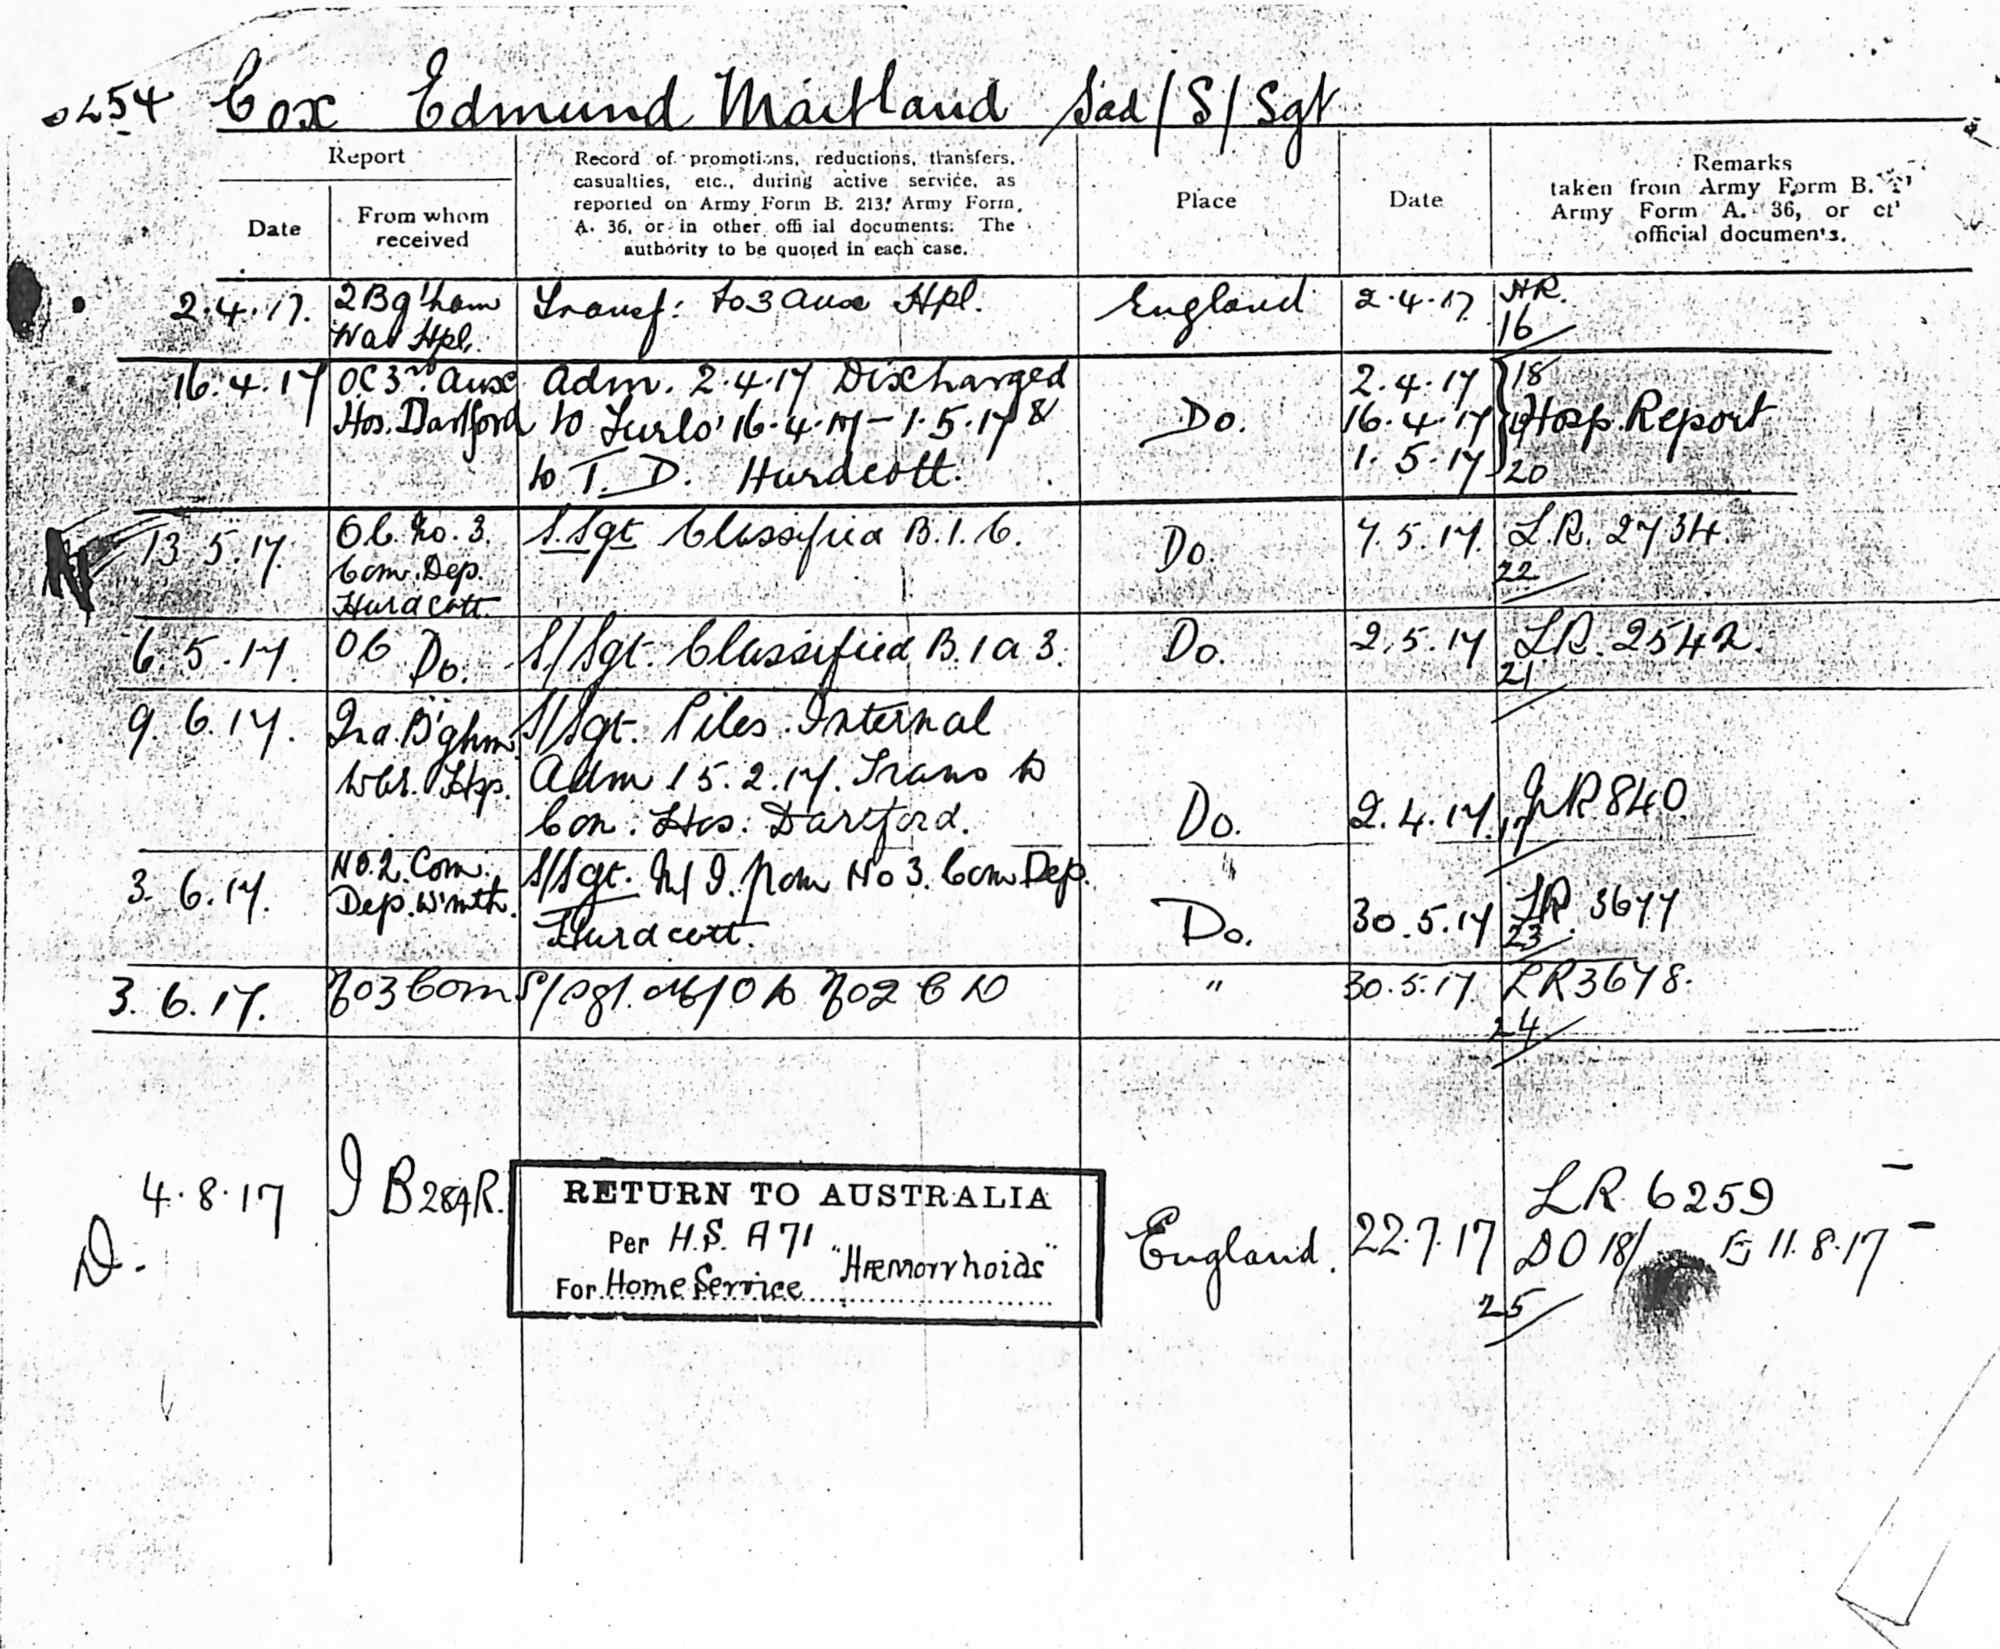 254 Cox Edmund Maitland Sad/S/Sgt
Report
Date
From whom
received
Record of promotions, reductions, transfers,
casualties, etc., during active service, as
reported on Army Form B. 213, Army Form
A. 36, or in other official documents. The
authority to be quoted in each case.
Place
Date
Remarks
taken from Army Form B.
Army Form A. 36, or
official documents.
2.4.17. 2 Bg'ham Transf: to 3 Aux Hpl. England 2.4.17 HR.
War Hpl. 16
16.4.17 OC 3rd Aux Adm. 2.4.17 Discharged 2.4.17 18
Hos. Dartford to Furlo' 16.4.17 - 1.5.17 & Do. 16.4.17 Hosp. Report
to T.D. Hurdcott. 1.5.17 20
13.5.17. O.C. No. 3. S.Sgt Classified B.1.C. Do. 7.5.17. L.R. 2734.
Com. Dep. 22
Hurdcott
6.5.17. OC Do. S/Sgt. Classified B.1 a 3. Do. 2.5.17 LR. 2542.
21
9.6.17. B'ghm S/Sgt. Piles Internal
War. Hsp. Adm 15.2.17. Trans to
Con. Hos. Dartford. Do. 2.4.17. R 840
3.6.17. No. 2. Com. S/Sgt. M/I. from No 3. Com Dep. Do. 30.5.17 LR. 3677
Dep. W'mth. Hurdcott. 23
3.6.17. No 3 Com S/Sgt. M/O to No 2 C D " 30.5.17. LR 3678.
24
4.8.17 B 284R. RETURN TO AUSTRALIA England. 22.7.17 LR 6259
D. Per H.S. A71 DO 18/ 11.8.17
"Hæmorrhoids"
For Home Service 25